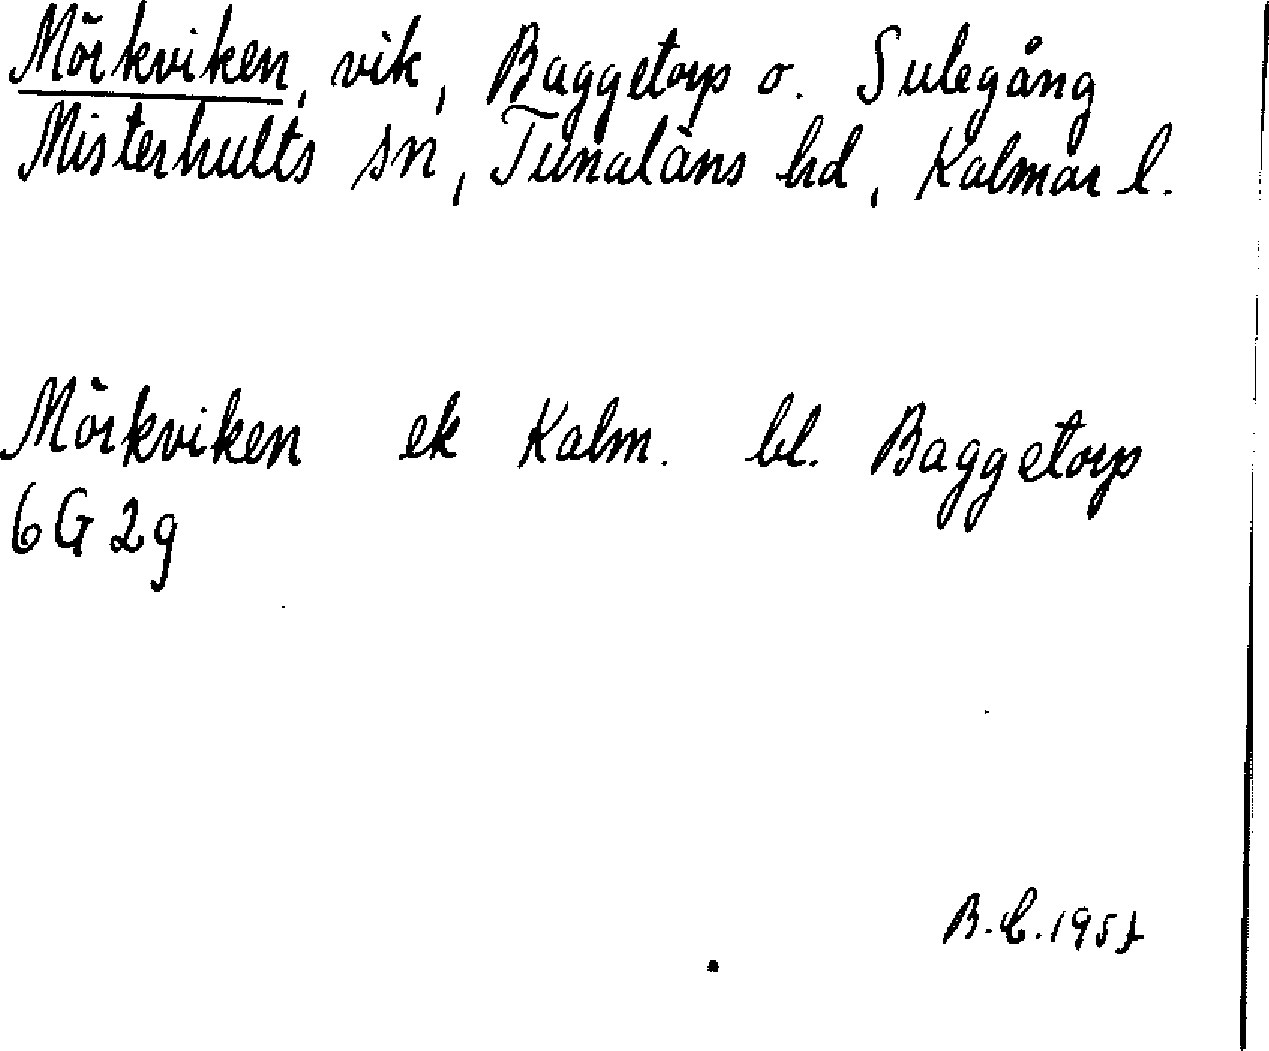 Mörkviken, vik, Baggetorp o. Sulegång
Misterhults sn, Tunaläns hd, Kalmar l.
Mörkviken ek Kalm. bl. Baggetorp
6G 2g
B.C.